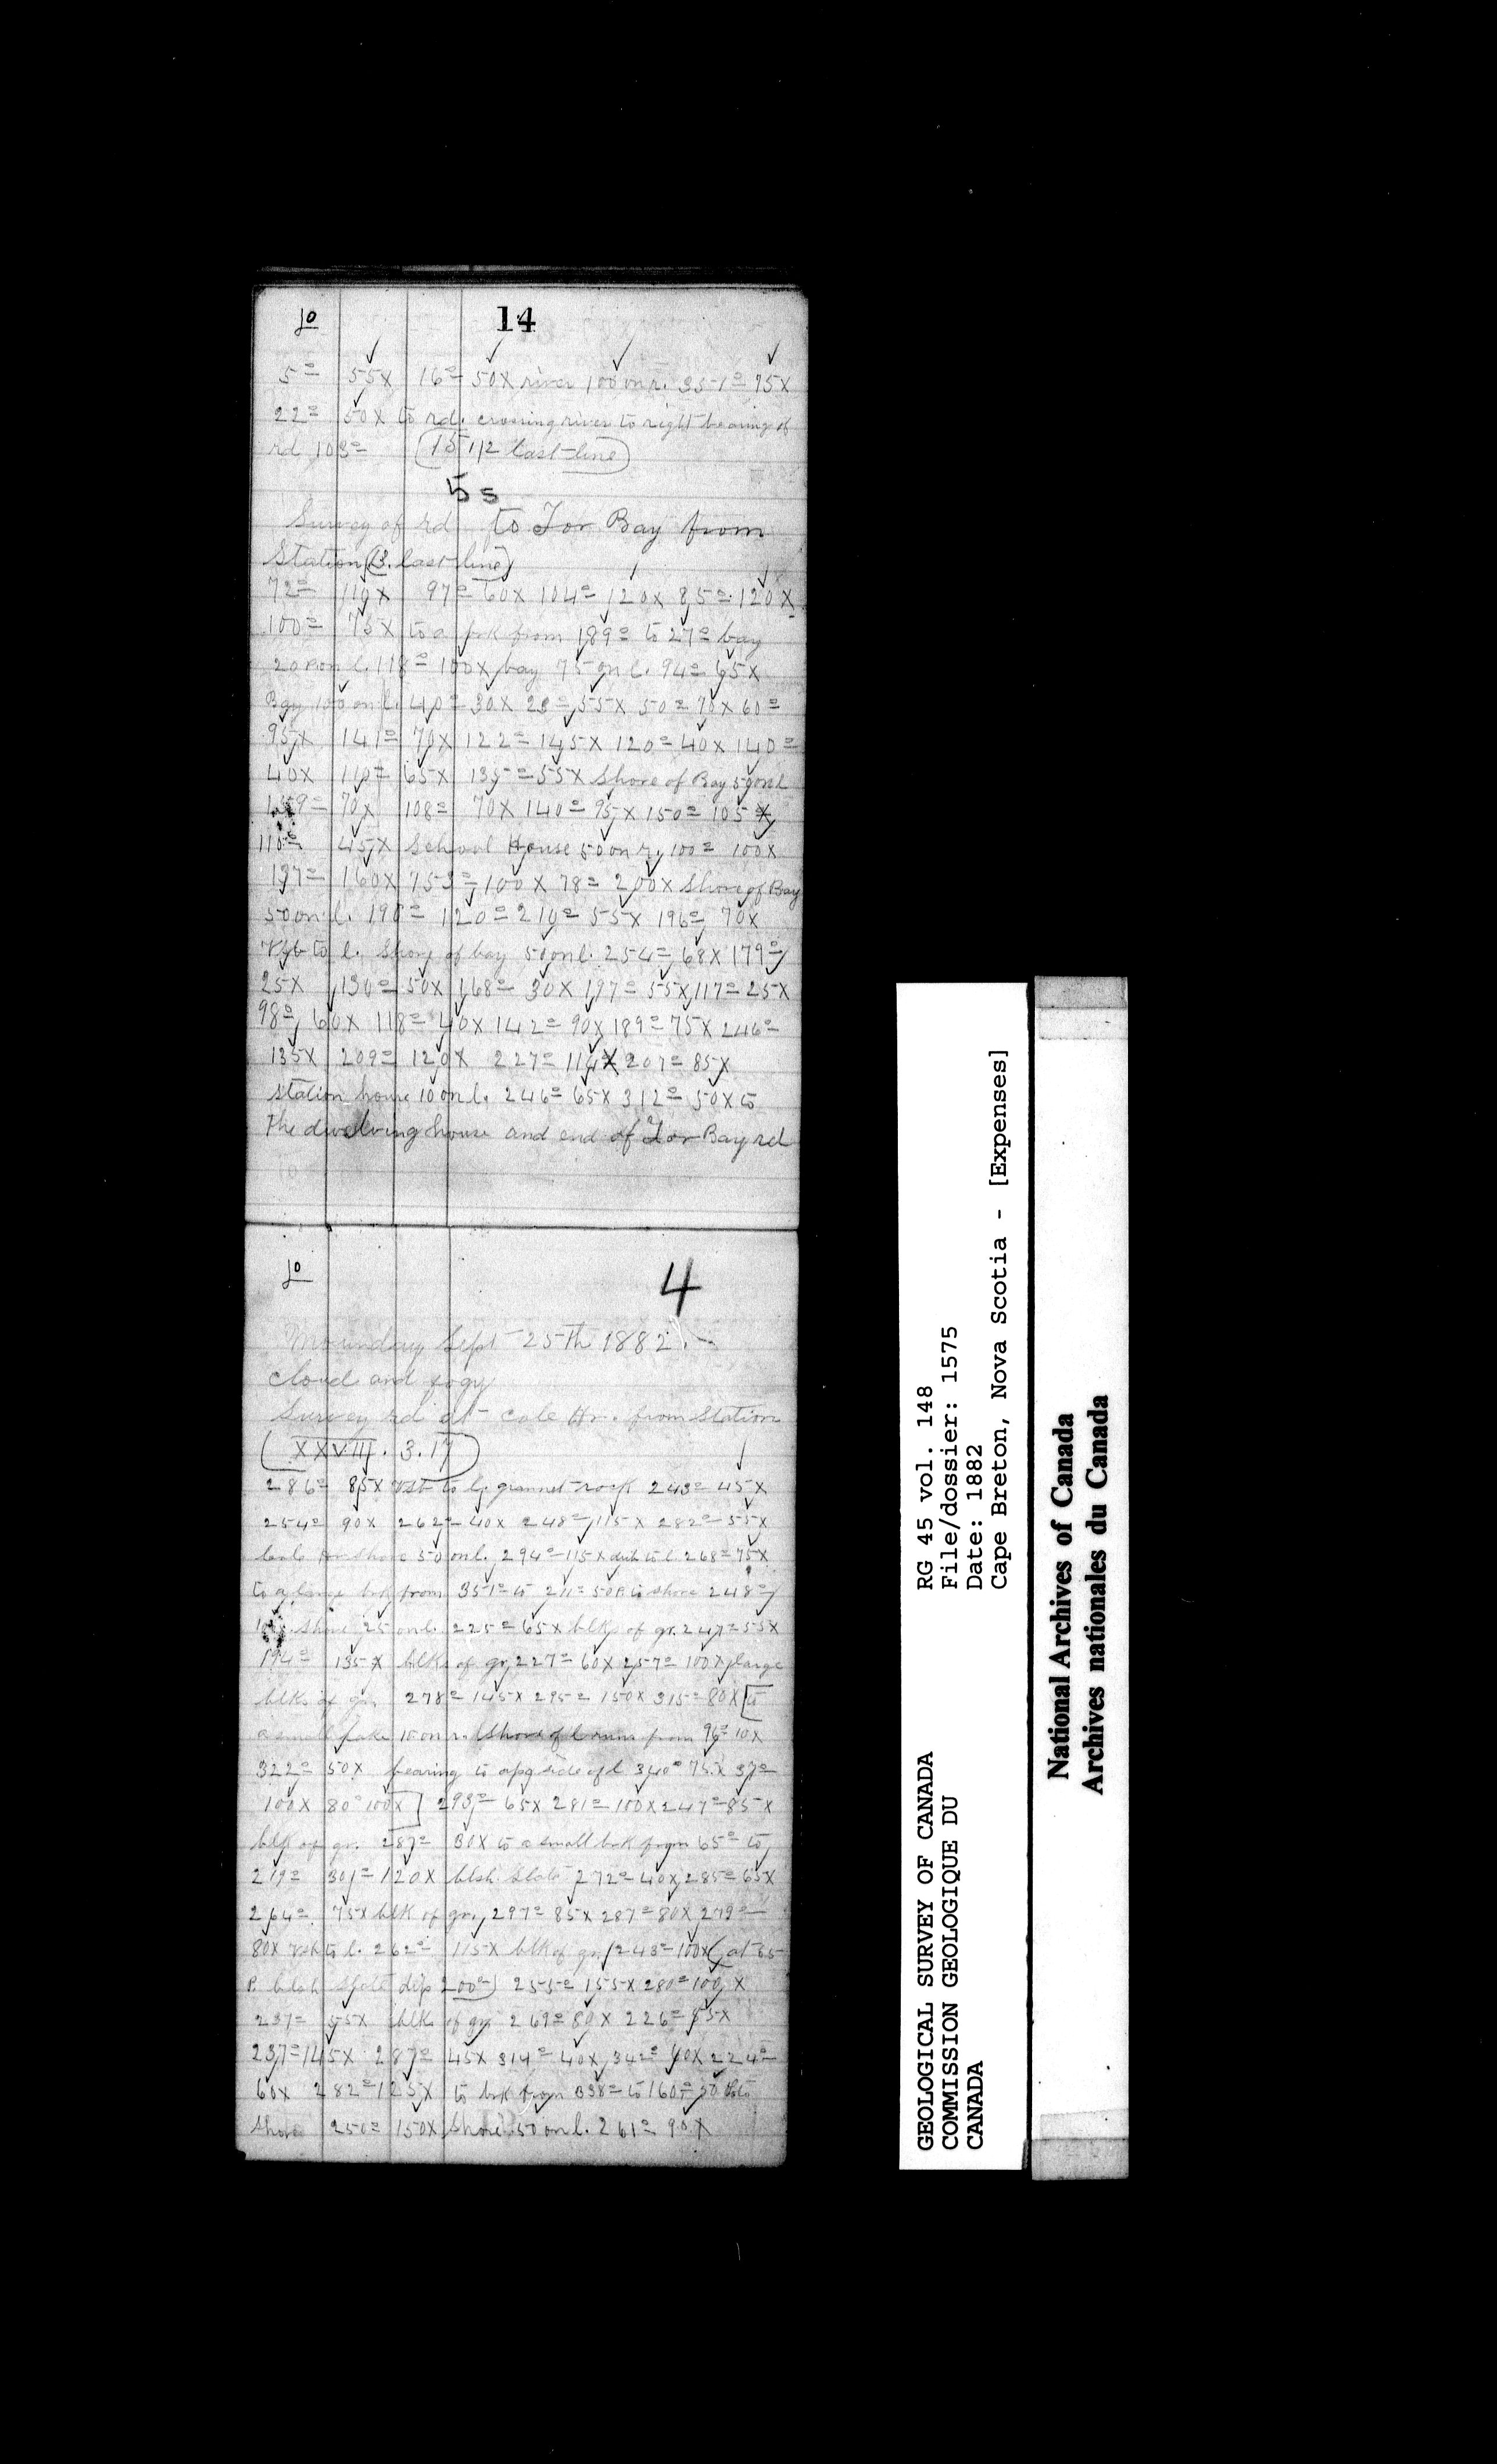 jo 14
5° 55x 16° 50x river 100 on r. 351° 75x
22° 50x to rd. crossing river to right bearing of
rd 103° (15 1/2 last line)
5s
Survey of rd to Tor Bay from
Station (3. last line)
72° 110x 97° 60x 104° 120x 85° 120x
100° 75x to a brk from 189° to 27° bay
200 on l. 118° 100x bay 75 on l. 94° 65x
Bay 100 on l. 40° 30x 23° 55x 50° 70x 60°
95x 141° 70x 122° 145x 120° 40x 140°
40x 110° 65x 135° 55x Shore of Bay 50 on l
159° 70x 108° 70x 140° 95x 150° 105x
110° 45x School House 50 on r. 100° 100x
137° 160x 153° 100x 78° 200x Shore of Bay
50 on l. 190° 120° 210° 55x 196° 70x
to l. Shore of bay 50 on l. 254° 68x 179°
25x 130° 50x 168° 30x 197° 55x 117° 25x
98° 60x 118° 40x 142° 90x 189° 75x 246°
135x 209° 120x 227° 114x 207° 85x
station house 10 on l. 246° 65x 312° 50x to
The dwelving house and end of Tor Bay rd
jo 4
Mounday Sept 25th 1882.
cloud and fogy
Survey rd at Cole Hr. from Station
(XXVIII. 3. 17)
286° 85x to l. grannet rock 243° 45x
254° 90x 262° 40x 248° 115x 282° 55x
shore 50 on l. 294° 115x to l. 268° 75x
to a large brk from 351° to 211° 50P. to shore 248°
shore 25 on l. 225° 65x blks of gr. 247° 55x
194° 135x blks of gr. 227° 60x 257° 100x large
blks of gr. 278° 145x 295° 150x 315° 80x [to
a small lake 10 on r. Shore of l runs from 96° 10x
322° 50x bearing to opp side of l 340° 75x 37°
100x 80° 100x] 293° 65x 281° 100x 247° 85x
blk of gr. 287° 30x to a small brk from 65° to
219° 301° 120x blsh. Slate 272° 40x 285° 65x
264° 75x blk of gr. 297° 85x 287° 80x 279°
80x to l. 262° 115x blk of gr. 243° 100x (at 65
P. blsh slate dip 200°) 255° 155x 280° 100x
237° 55x blks of gr. 269° 80x 226° 55x
237° 145x 287° 45x 314° 40x 342° 40x 224°
60x 282° 125x to brk from 338° to 160° 50 P. to
shore 250° 150x Shore 50 on l. 261° 90x
GEOLOGICAL SURVEY OF CANADA
COMMISSION GEOLOGIQUE DU
CANADA
RG 45 vol. 148
File/dossier: 1575
Date: 1882
Cape Breton, Nova Scotia - [Expenses]
National Archives of Canada
Archives nationales du Canada